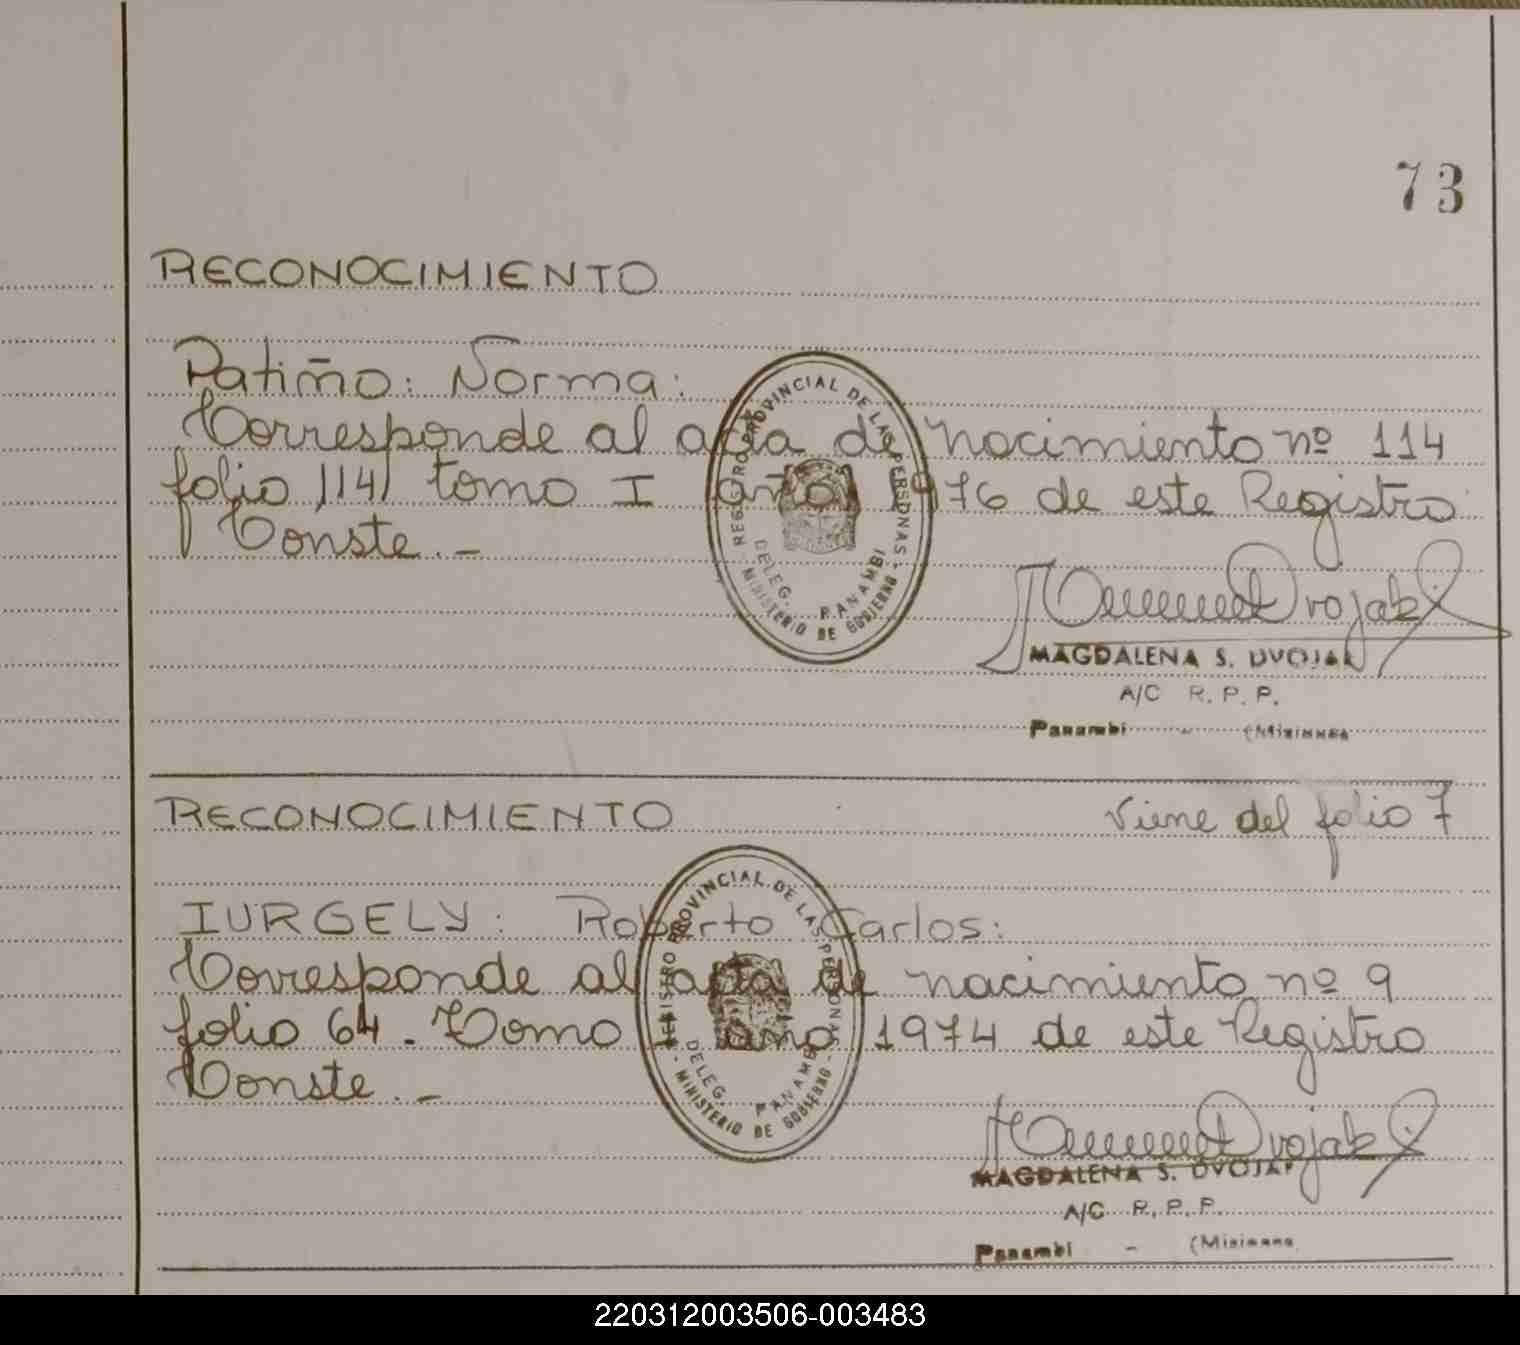 73
RECONOCIMIENTO
Patiño: Norma:
Corresponde al acta de nacimiento nº 114
folio 114 tomo I año 1976 de este Registro
Conste.-
REGISTRO PROVINCIAL DE LAS PERSONAS - MINISTERIO DE GOBIERNO -
DELEG. PANAMBI
Dvojak
MAGDALENA S. DVOJAK
A/C R. P. P.
Panambi - (Misiones
RECONOCIMIENTO Viene del folio 7
IURGELY: Roberto Carlos:
Corresponde al acta de nacimiento nº 9
folio 64. Tomo I año 1974 de este Registro
Conste.-
REGISTRO PROVINCIAL DE LAS PERSONAS - MINISTERIO DE GOBIERNO -
DELEG. PANAMBI
Dvojak
MAGDALENA S. DVOJAK
A/C R. P. P.
Panambi - (Misiones
220312003506-003483